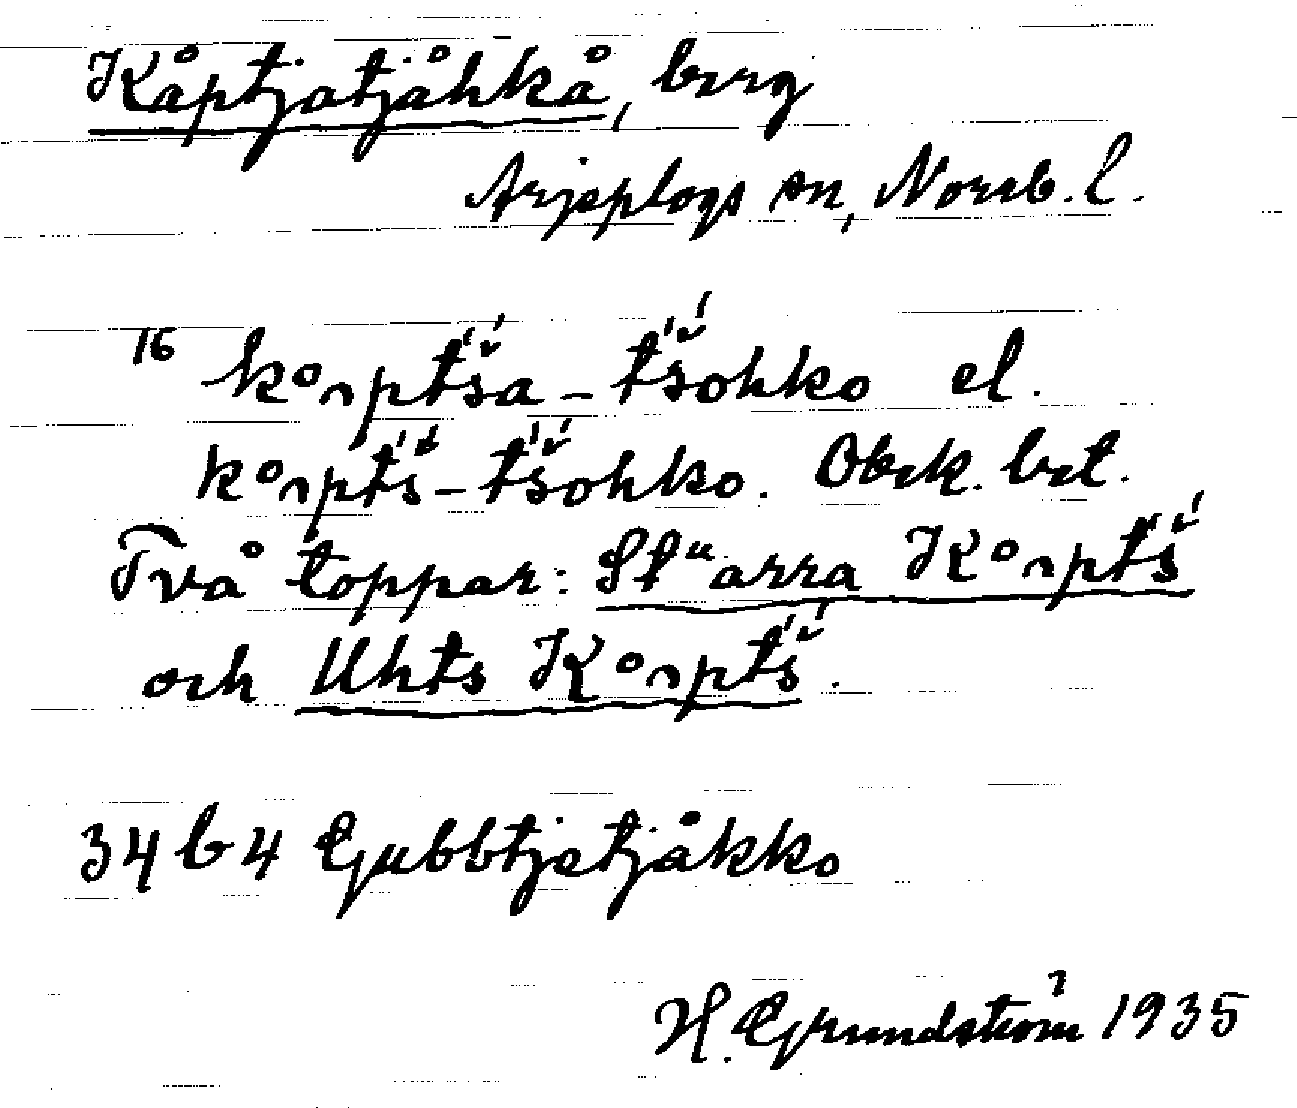 Kåptjatjåhkå, berg
Arjeplogs sn, Norrb. l.
16 kºąptš́a-tš́ohko el.
kºąptš́-tš́ohko. Obek. bet.
Två toppar: Stuarra Kºąptš́
och Uhts Kºąptš́.
34 b 4 Gubbtjetjåkko
H. Grundström 1935